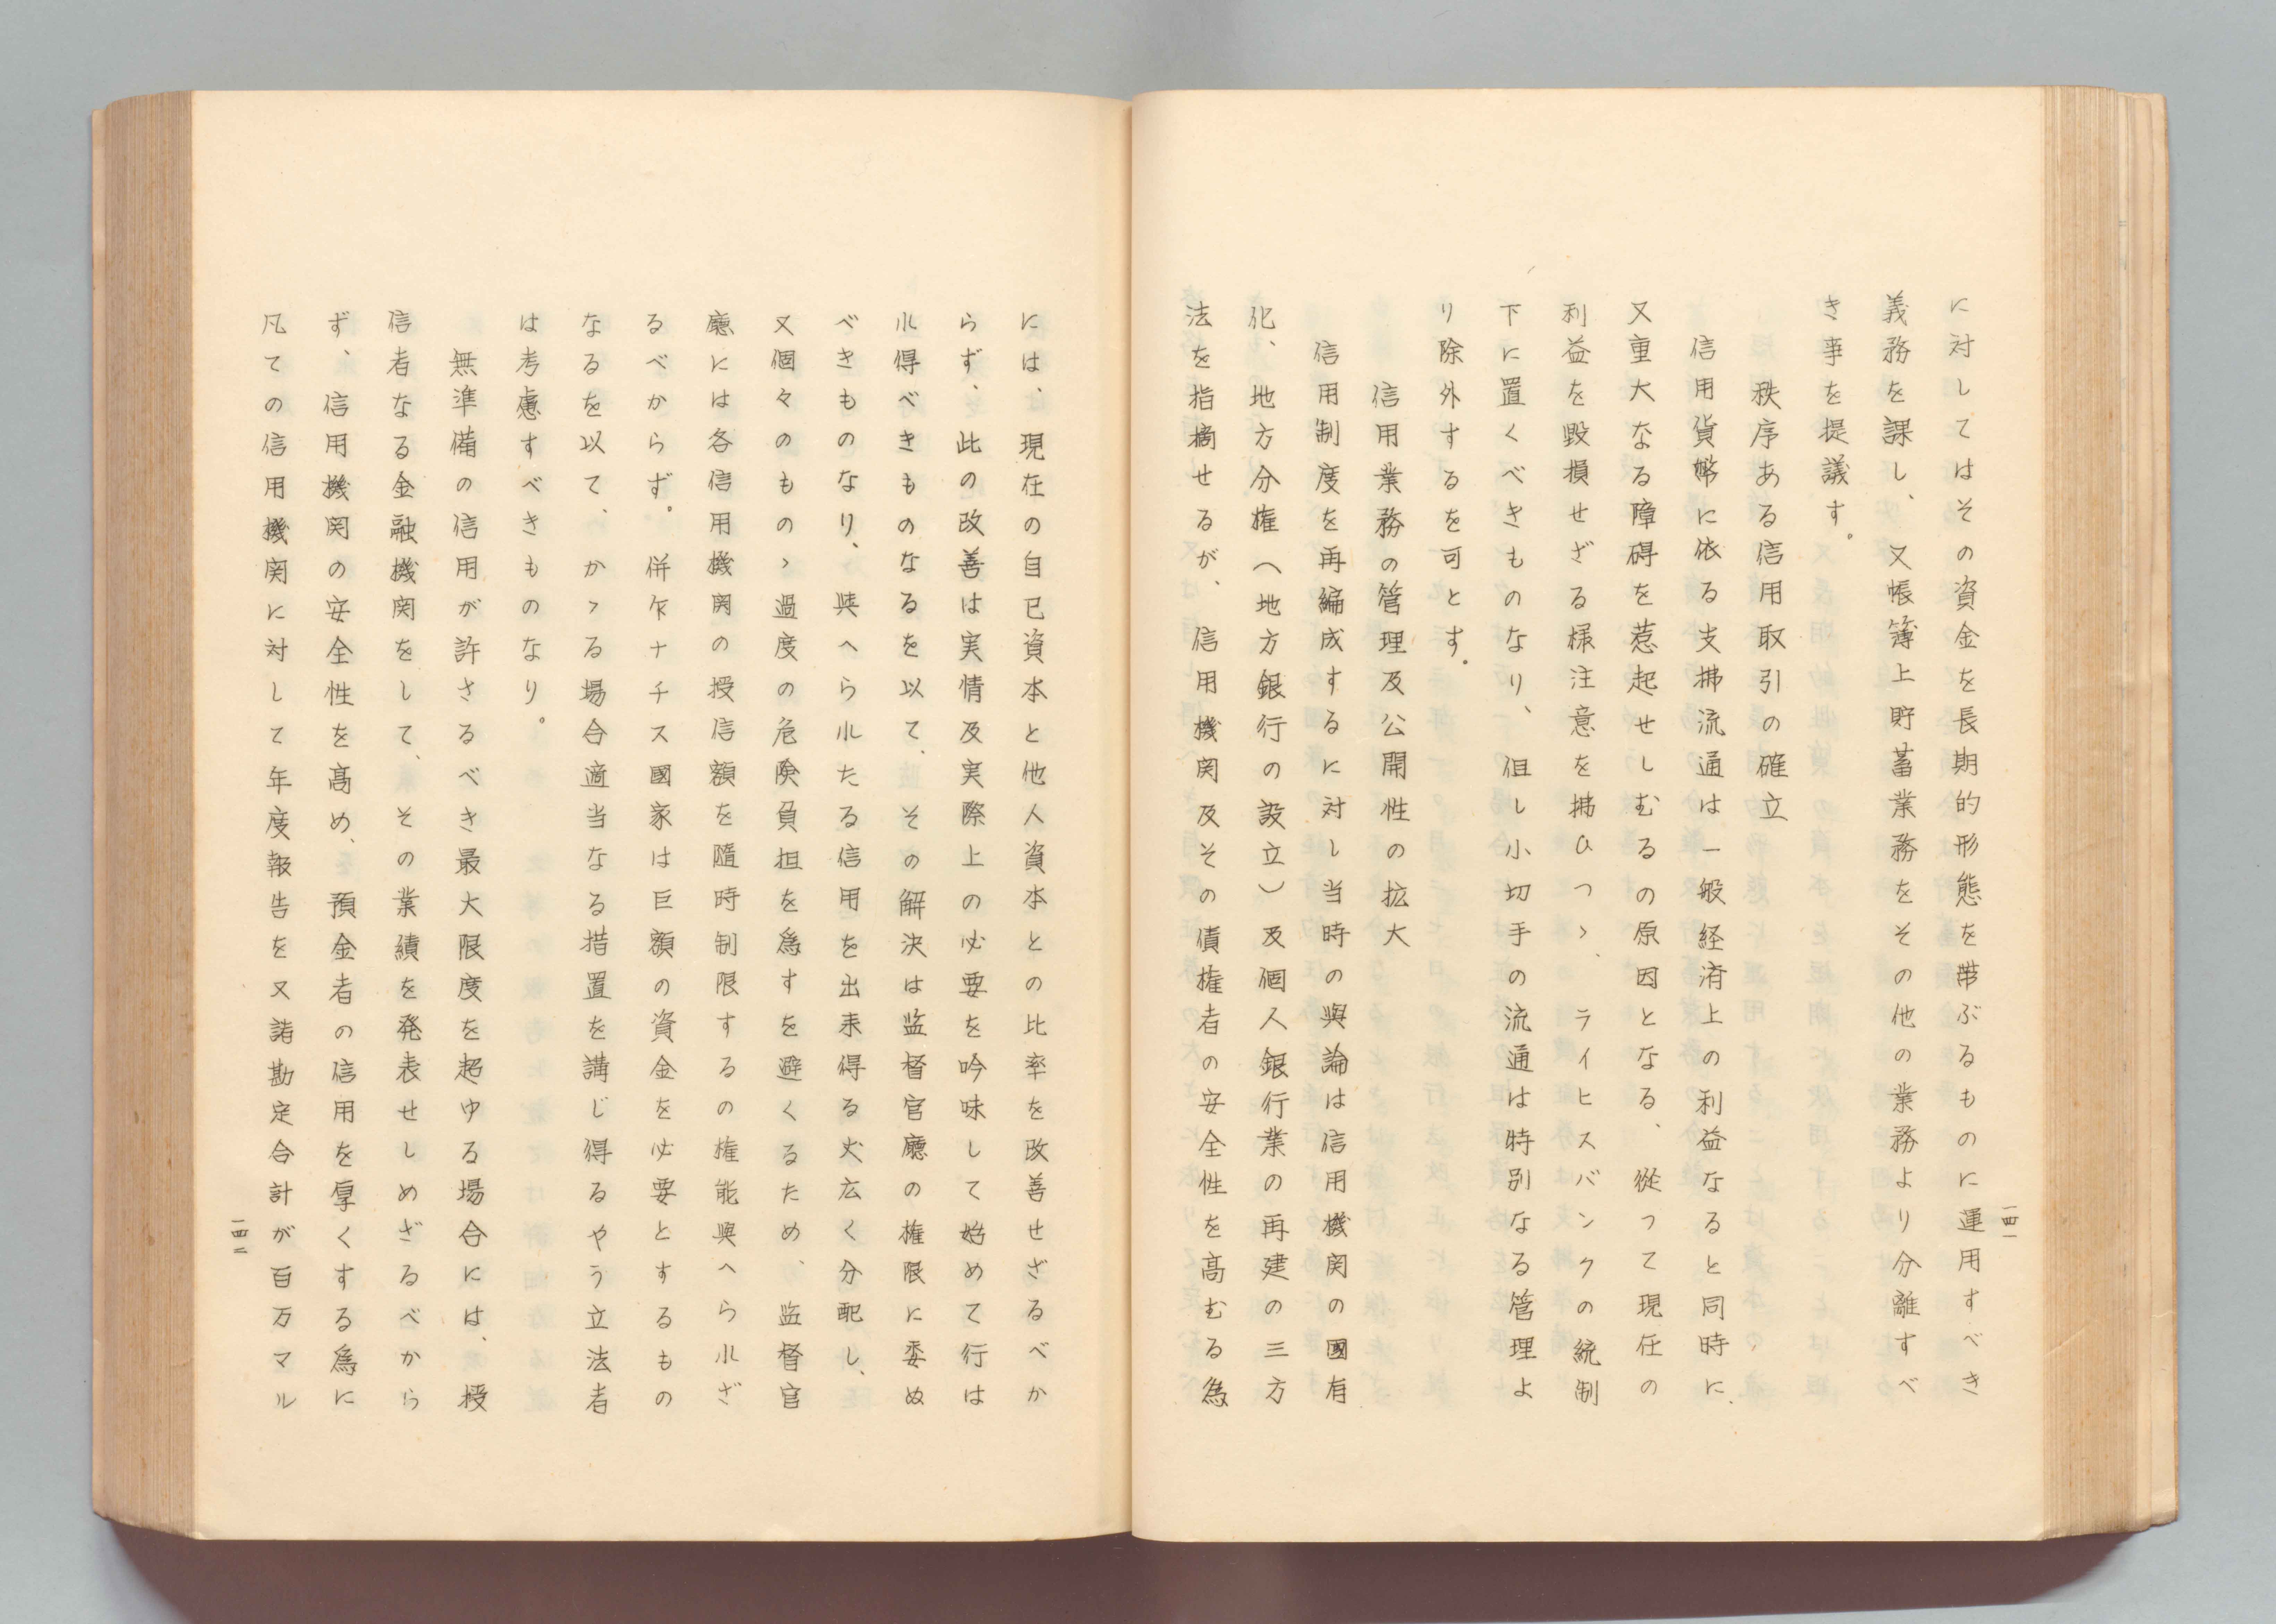 に対してはその資金を長期的形態を帯ぶるものに運用すべき
義務を課し、又帳簿上貯蓄業務をその他の業務より分離すべ
き事を提議す。
秩序ある信用取引の確立
信用貨幣に依る支拂流通は一般経済上の利益なると同時に、
又重大なる障碍を惹起せしむるの原因となる、従って現任の
利益を毀損せざる様注意を拂ひつゝ、ライヒスバンクの統制
下に置くべきものなり、但し小切手の流通は特別なる管理よ
り除外するを可とす。
信用業務の管理及公開性の拡大
信用制度を再編成するに対し当時の輿論は信用機関の國有
化、地方分権（地方銀行の設立）及個人銀行業の再建の三方
法を指摘せるが、信用機関及その債権者の安全性を高むる為
一四一
には、現在の自己資本と他人資本との比率を改善せざるべか
らず、此の改善は実情及実際上の必要を吟味して始めて行は
れ得べきものなるを以て、その解決は監督官廳の権限に委ぬ
べきものなり、與へられたる信用を出来得る丈広く分配し、
又個々のものゝ過度の危険負担を為すを避くるため、監督官
廳には各信用機関の授信額を隨時制限するの権能與へられざ
るべからず。併乍ナチス國家は巨額の資金を必要とするもの
なるを以て、かゝる場合適当なる措置を講じ得るやう立法者
は考慮すべきものなり。
無準備の信用が許さるべき最大限度を超ゆる場合には、授
信者なる金融機関をして、その業績を発表せしめざるべから
ず、信用機関の安全性を高め、預金者の信用を厚くする為に
凡ての信用機関に対して年度報告を又諸勘定合計が百万マル
一四二